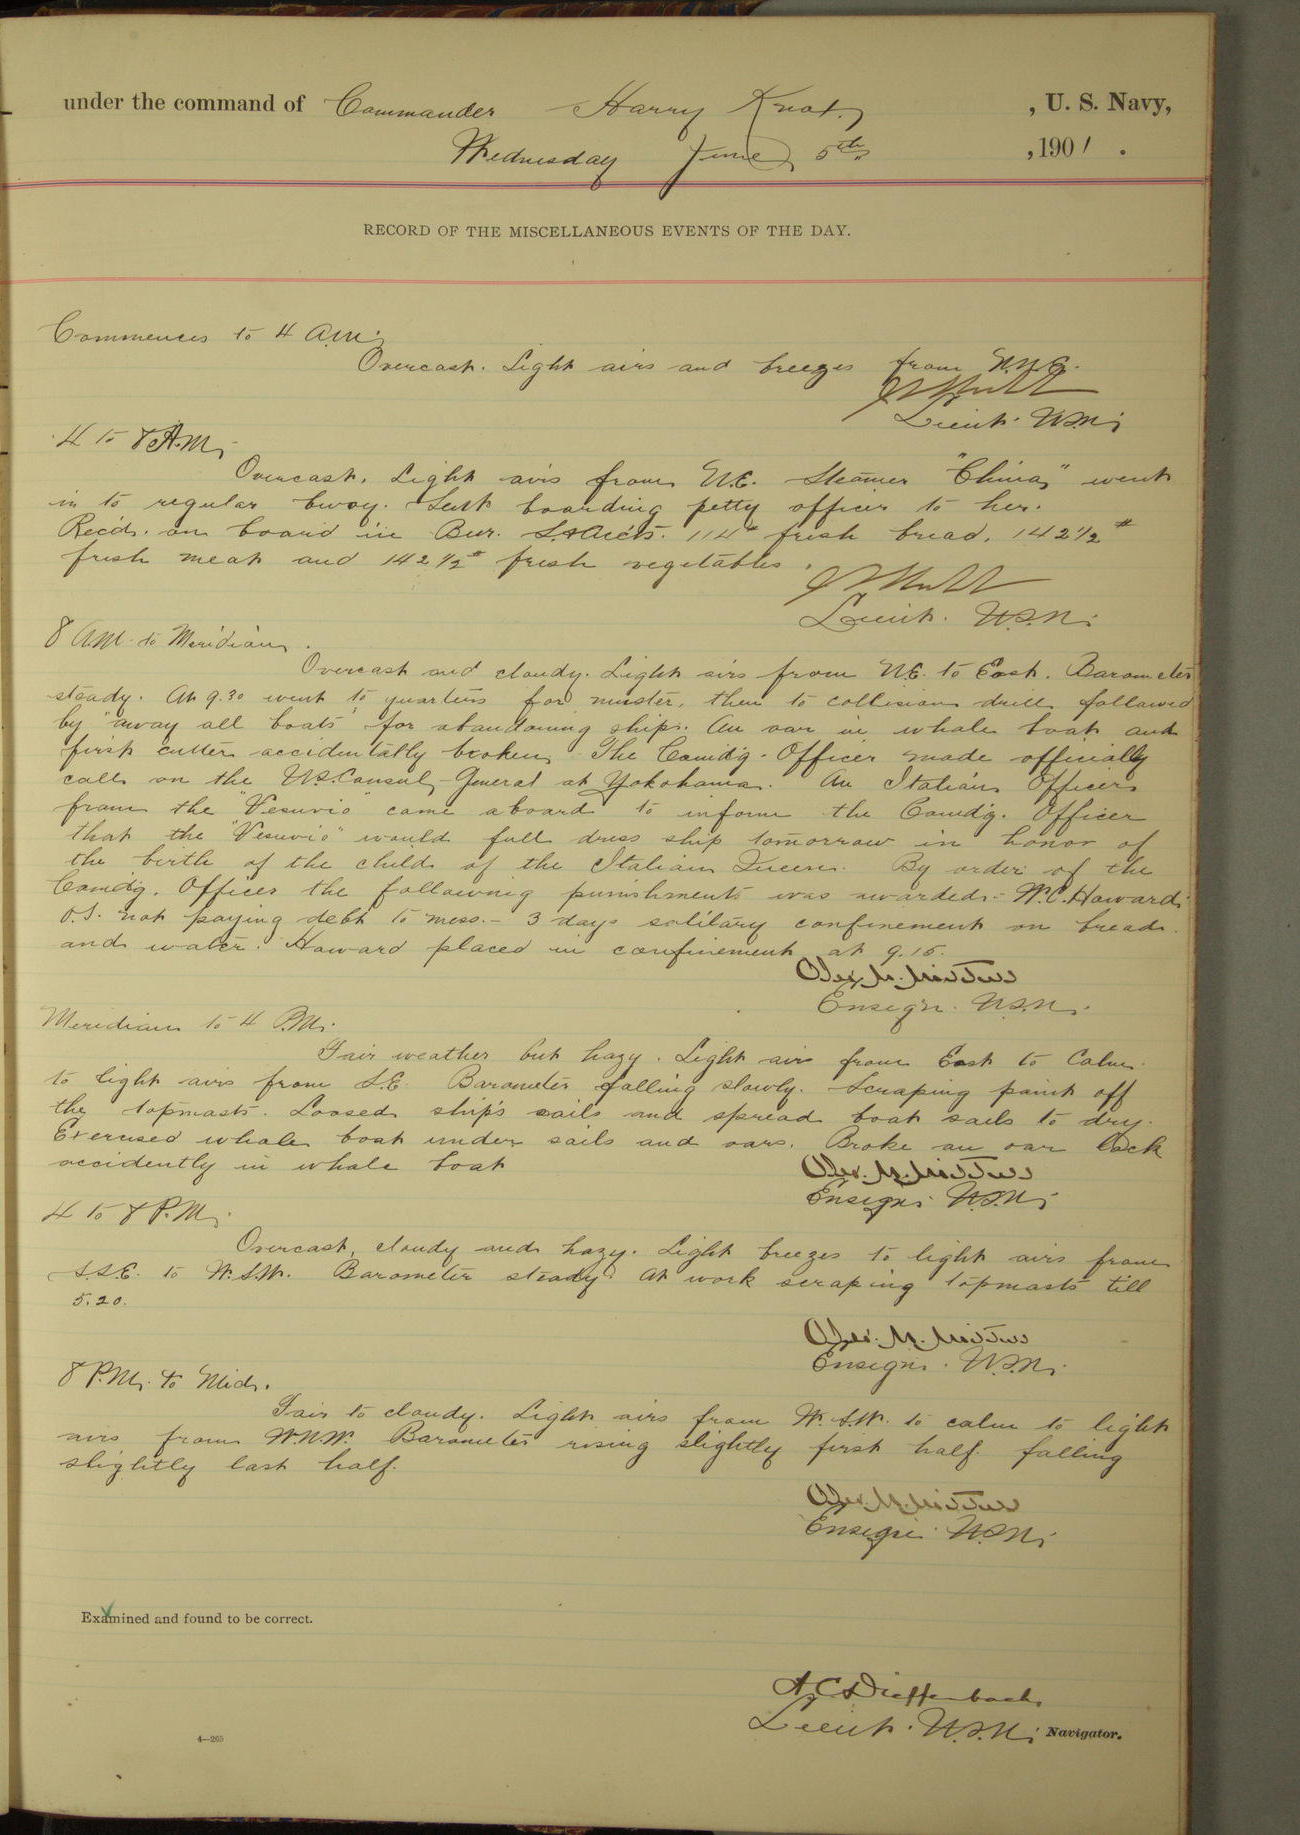 under the command of Commander Harry Knox, , U. S. Navy,
Wednesday June 5th , 1901 .
RECORD OF THE MISCELLANEOUS EVENTS OF THE DAY.
Commences to 4 A.M.
Overcast. Light airs and breezes from N.N.E.
Lieut. U.S.N.
4 to 8 A.M.
Overcast. Light airs from N.E. Steamer "China" went
in to regular buoy. Sent boarding petty officer to her.
Rec'd. on board in Bur. S.&Acc'ts. 114# fresh bread, 142 1/2#
fresh meat and 142 1/2# fresh vegetables.
Lieut. U.S.N.
8 A.M. to Meridian.
Overcast and cloudy. Light airs from N.E. to East. Barometer
steady. At 9.30 went to quarters for muster, then to collision drill followed
by "away all boats" for abandoning ship. An oar in whale boat and
first cutter accidentally broken. The Comd'g. Officer made officially
call on the U.S. Consul General at Yokohama. An Italian Officer
from the "Vesuvio" came aboard to inform the Comd'g. Officer
that the "Vesuvio" would full dress ship tomorrow in honor of
the birth of the child of the Italian Queen. By order of the
Comd'g. Officer the following punishment was awarded:- W.C. Howard
O.S. not paying debt to mess.- 3 days solitary confinement on bread
and water. Howard placed in confinement at 9.15.
Ensign. U.S.N.
Meridian to 4 P.M.
Fair weather but hazy. Light airs from East to Calm
to light airs from S.E. Barometer falling slowly. Scraping paint off
the topmasts. Loosed ship's sails and spread boat sails to dry.
Exercised whale boat under sails and oars. Broke an oar lock
accidently in whale boat
Ensign. U.S.N.
4 to 8 P.M.
Overcast, cloudy and hazy. Light breezes to light airs from
S.S.E. to W.S.W. Barometer steady. At work scraping topmasts till
5.20.
Ensign. U.S.N.
8 P.M. to Mid.
Fair to cloudy. Light airs from W.S.W. to calm to light
airs from W.N.W. Barometer rising slightly first half falling
slightly last half.
Ensign U.S.N.
Examined and found to be correct.
A C Dieffenbach
Lieut. U.S.N. Navigator.
4—265